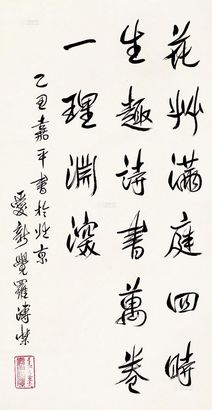 花艸滿庭四時
生趣詩書萬卷
一理淵深
乙丑嘉平書於北京
愛新覺羅溥傑